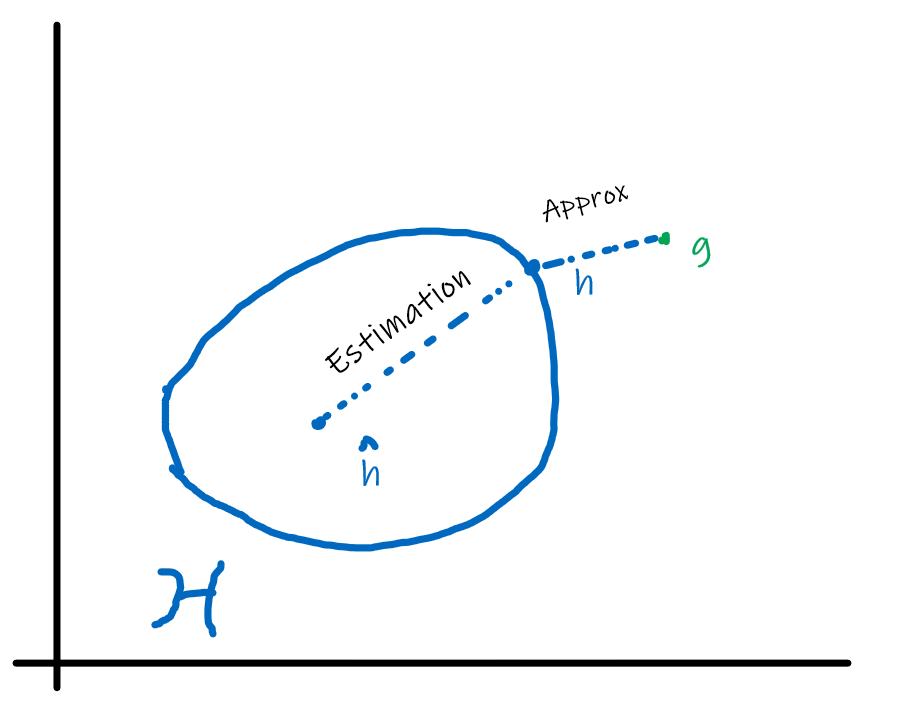 Approx
g
h
Estimation
ĥ
ℋ